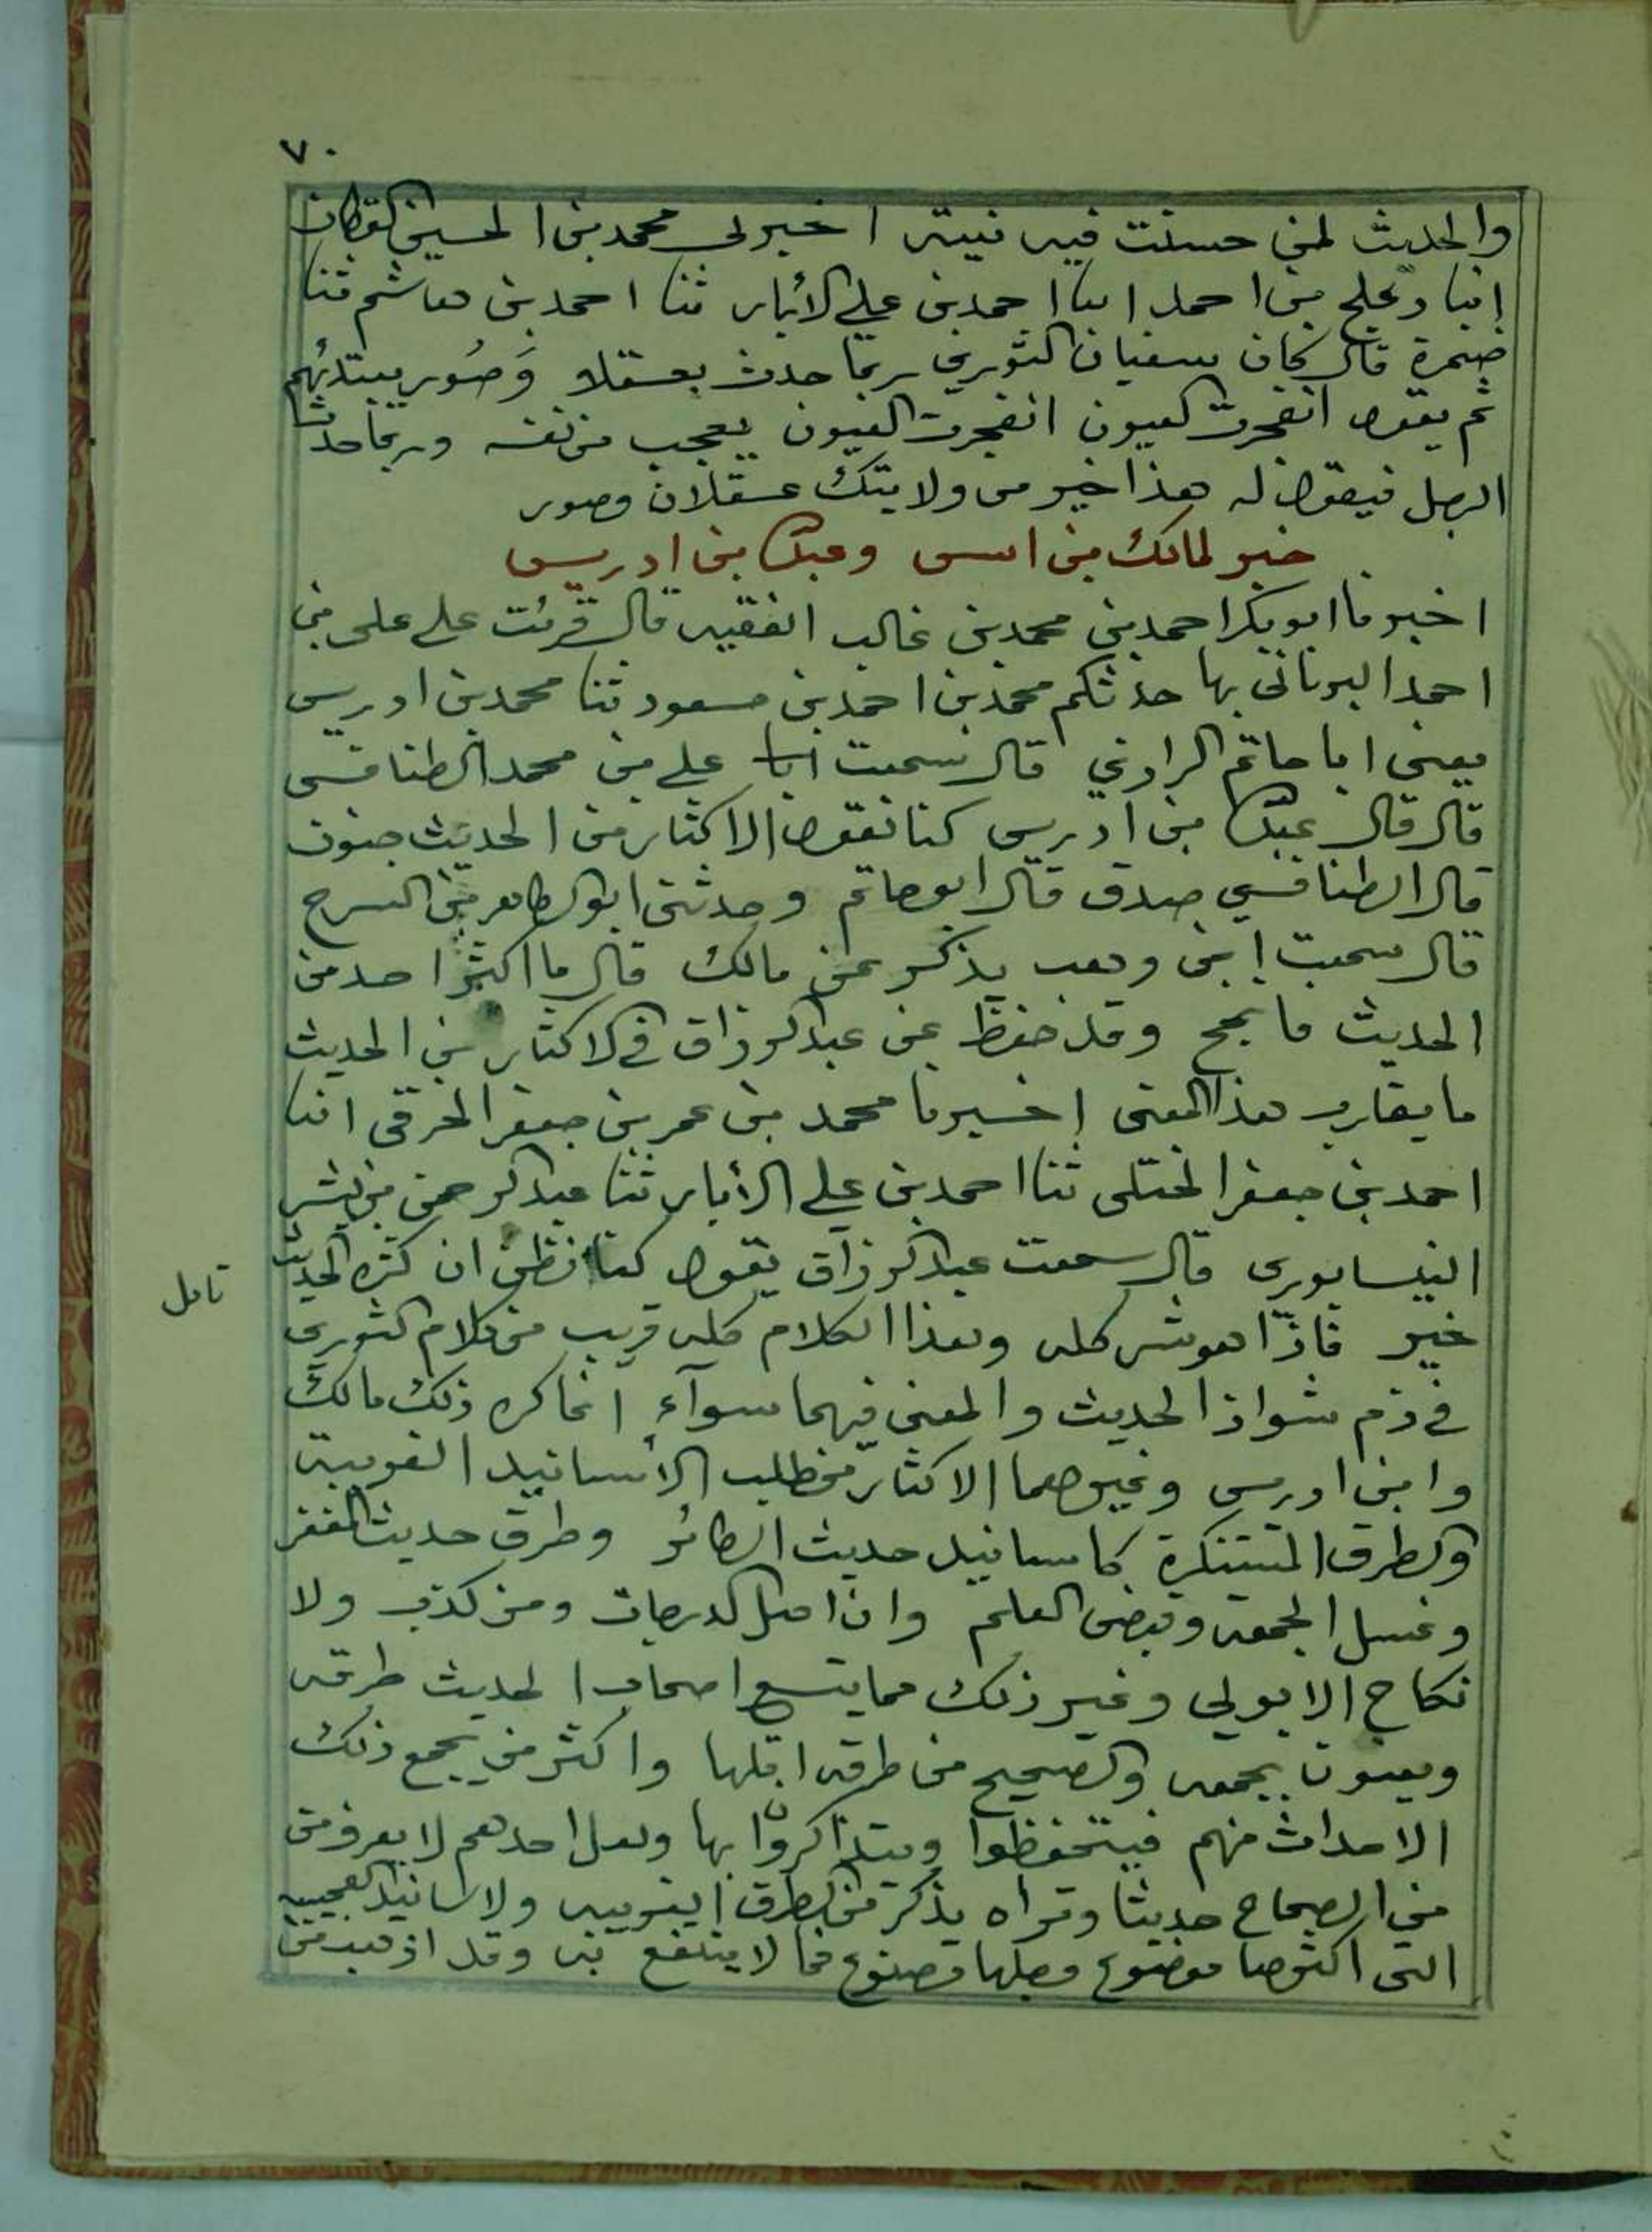 ٧٠
والحديث لمن حسنت فيه نيته اخبرني محمد بن الحسين القطان
انبا دعلج بن احمد انبا احمد بن علي الأبار ثنا احمد بن هاشم ثنا
ضمرة قال كان سفيان الثوري ربما حدث بعسقلا وَصُور يبتدئهم
ثم يقول انفجرت العيون انفجرت العيون يعجب من نفسه وربما حدث
الرجل فيقول له هذا خير من ولايتك عسقلان وصور
خبر لمالك بن انس وعبدالله بن ادريس
اخبرنا ابو بكر احمد بن محمد بن غالب الفقيه قال قرئت علي على بن
احمد البرناتى بها حدثكم محمد بن احمد بن مسعود ثنا محمد بن ادريس
يعني ابا حاتم الرازي قال سمعت علي بن محمد الطنافسى
قال قال عبدالله بن ادريس كنا نقول الاكثار من الحديث جنون
قال الطنافسي صدق قال ابو حاتم وحدثني ابو الطاهر بن السرح
قال سمعت ابن وهب يذكر عن مالك قال ما اكثر احد من
الحديث فانجح وقد حفظ عن عبد الرزاق في الاكثار من الحديث
ما يقارب هذا المعنى اخبرنا محمد بن عمر بن جعفر الخرقى انبا
احمد بن جعفر الختلى ثنا احمد بن علي الأبار ثنا عبد الرحمن بن بشر
النيسابورى قال سمعت عبد الرزاق يقول كنا نظن ان كثره الحديث
تامل
خير فاذا هو شر كله وهذا الكلام كله قريب من كلام الثوري
في ذم شواذ الحديث والمعنى فيهما سوآء انما كره ذلك مالك
وابن ادريس وغيرهما الاكثار من طلب الأسانيد الغريبة
والطرق المستنكرة كاسانيد حديث الطائر وطرق حديث المغفر
وغسل الجمعه وقبض العلم وان اهل الدرجات ومن كذب ولا
نكاح الا بولي وغير ذلك مما يتسع اصحاب الحديث طرقه
ويعنون بجمعه والصحيح من طرقه اقلها واكثر من يجمع ذلك
الاحداث منهم فيتحفظوا ويتذاكروا بها ولعل احدهم لا يعرف من
من الصحاح حديثا وتراه يذكر من الطرق الغريبه والاسانيد العجيبه
التى اكثرها موضوع وجلها مصنوع مما لا ينتفع به وقد اذهب من